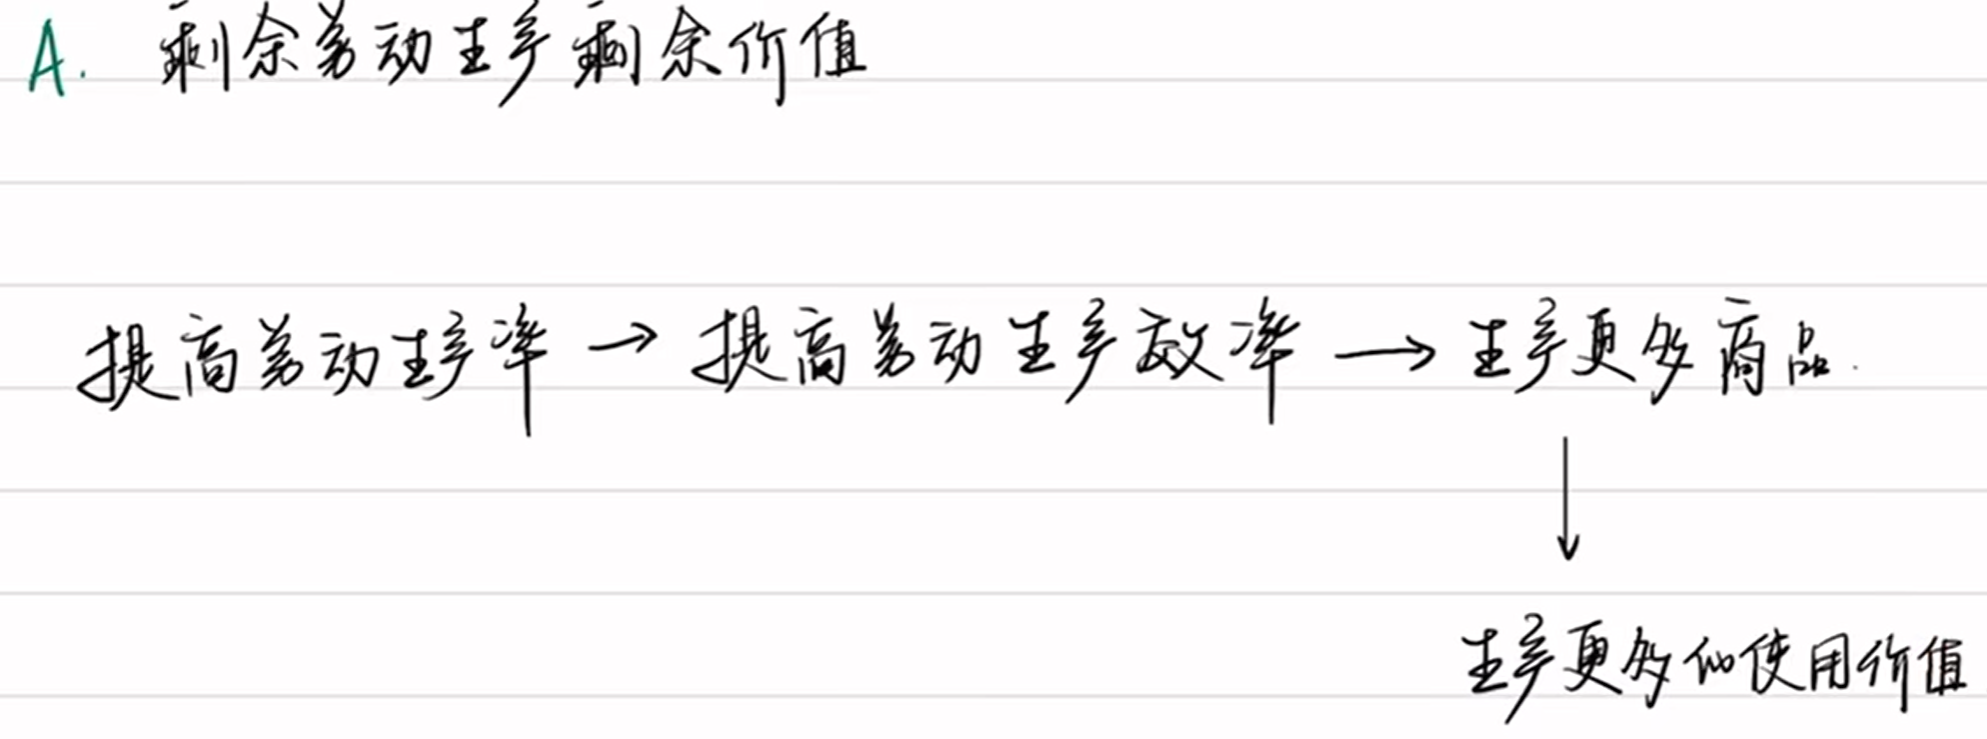 A. 剩余劳动生产剩余价值
提高劳动生产率 → 提高劳动生产效率 → 生产更多商品.
↓
生产更多的使用价值